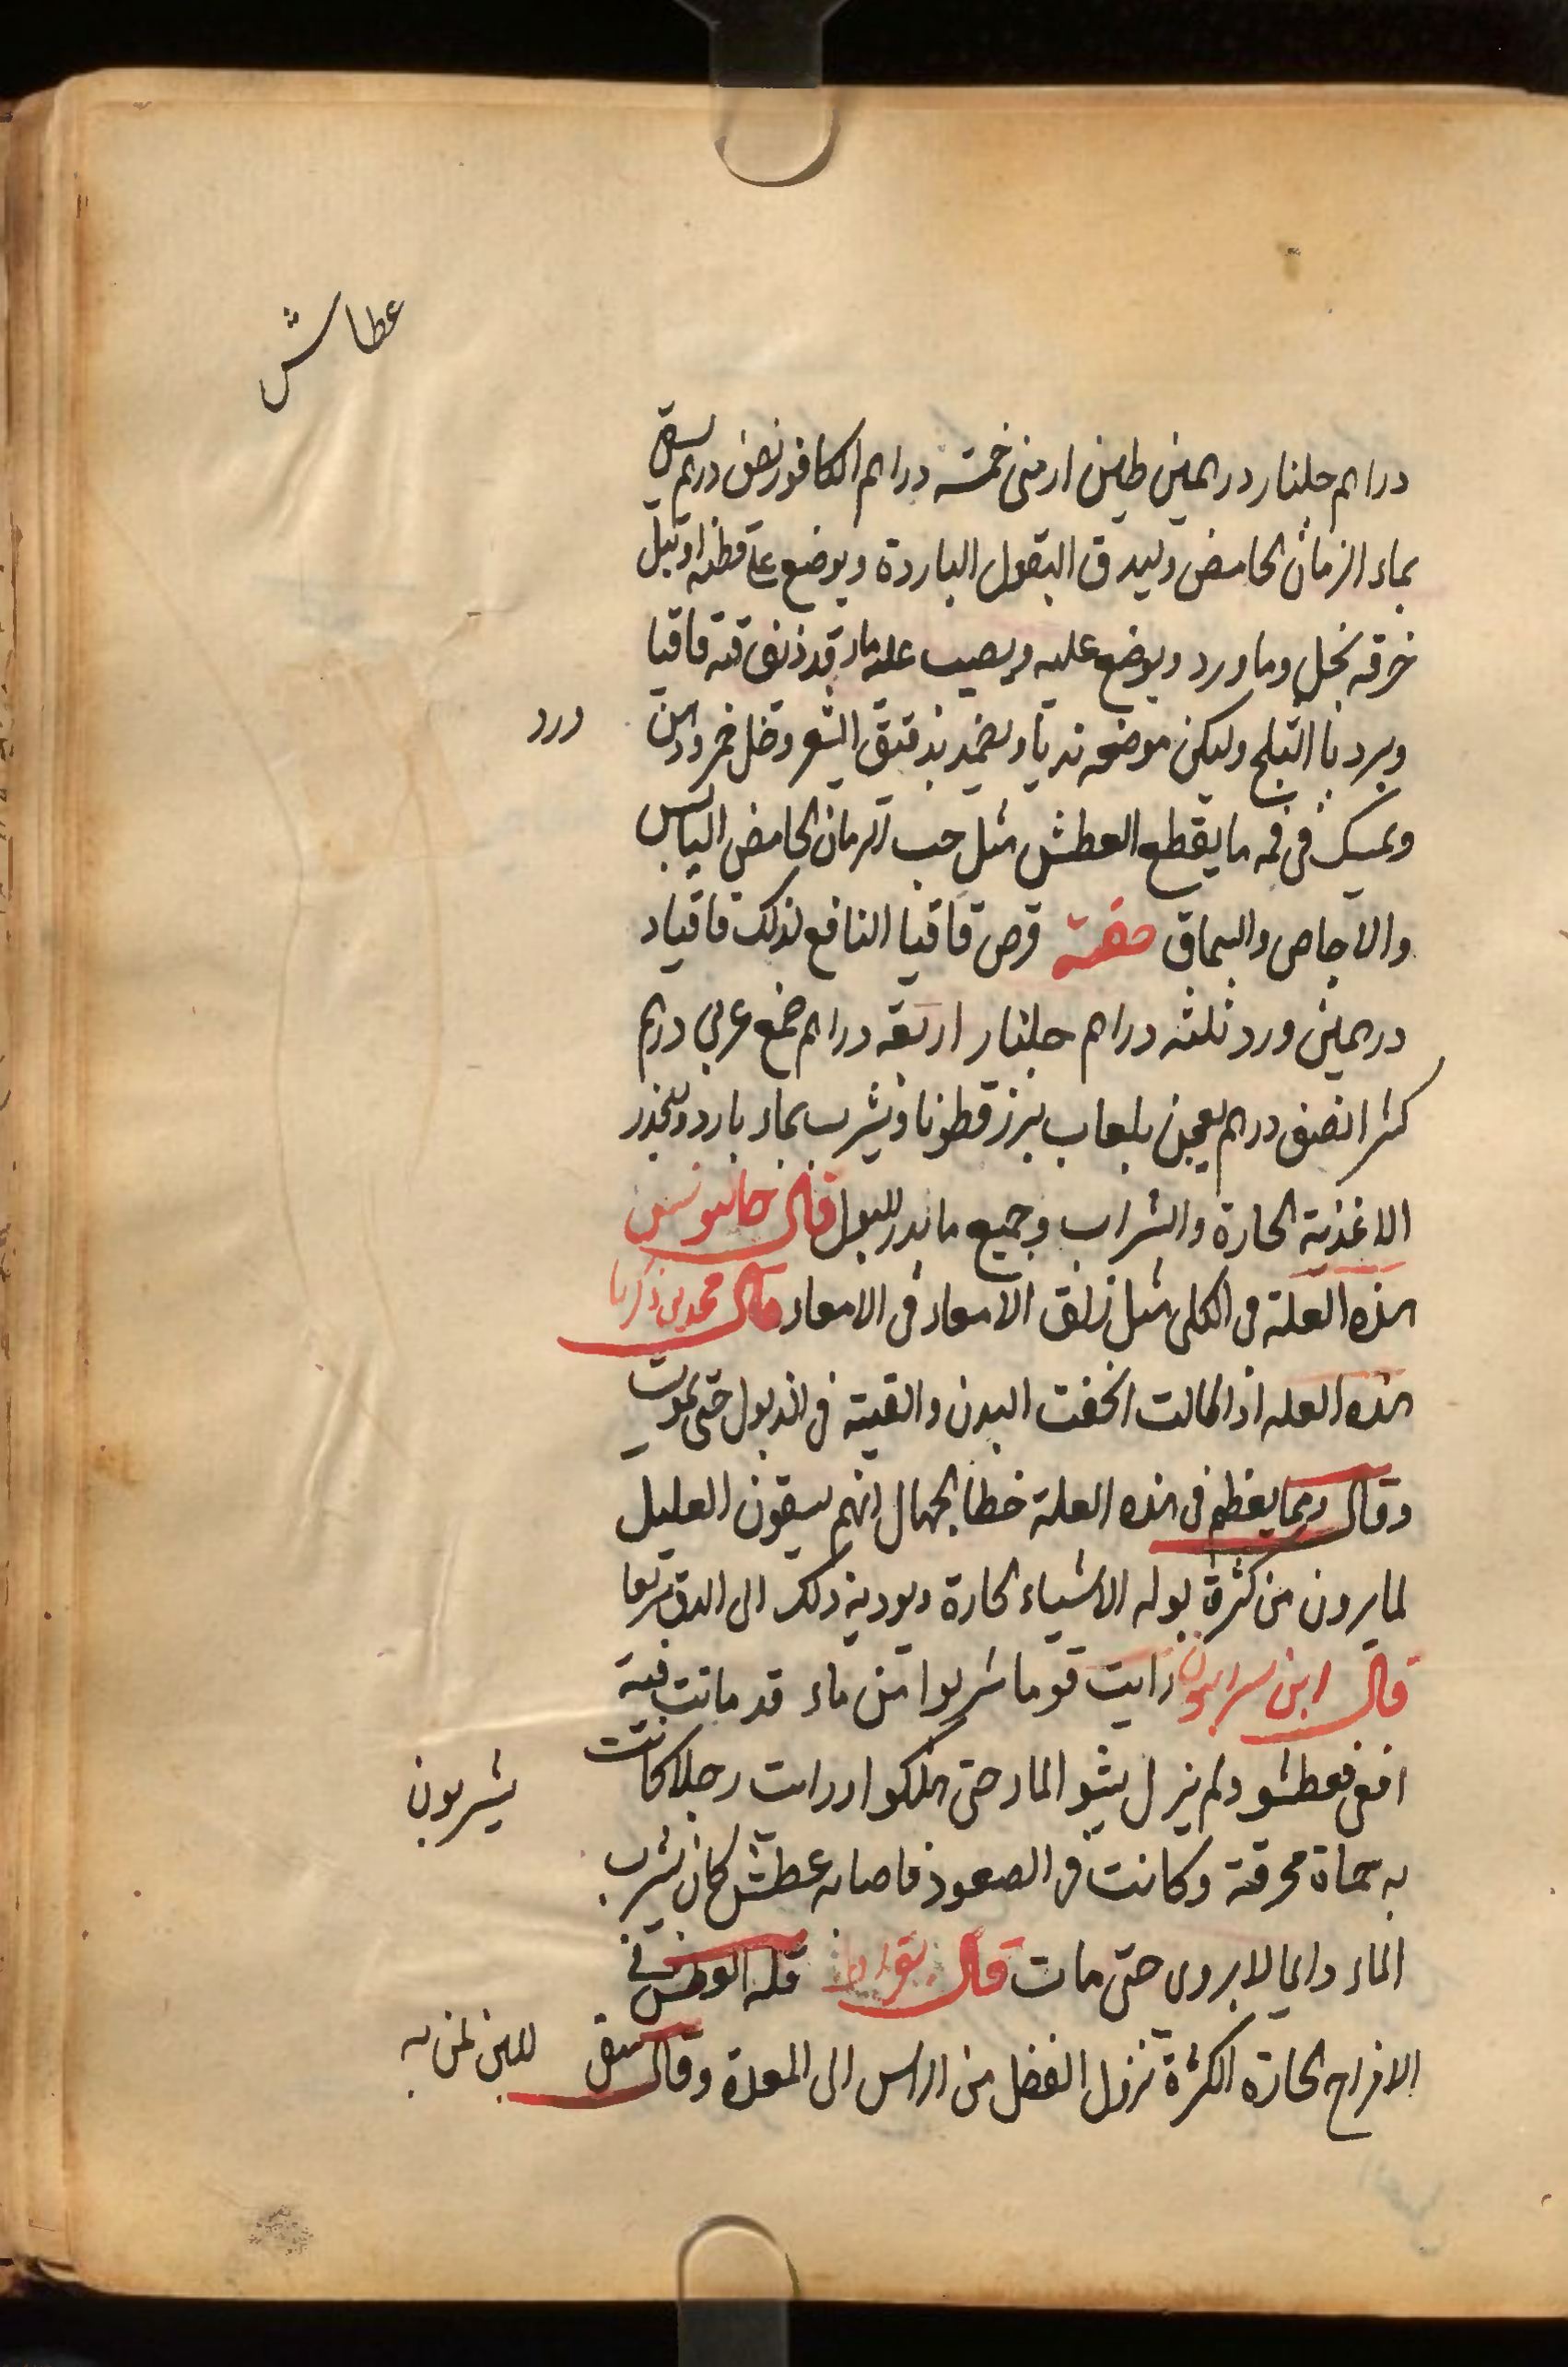 عطاش
دراهم جلنار درهمين طين ارمنى خمسه دراهم الكافور نصف درهم يسقى
بماء الرمان الحامض وليدق البقول الباردة ويوضع على قطنه او تبل
خرقه بخل وماورد ويوضع عليه ويصب عليه ماء قد ذوف فيه قاقيا
ويرد بالثلج وليكن موضعه نديا ويضمد بدقيق الشعير وخل خمر ودهن
ورد
ويمسك فى فمه ما يقطع العطش مثل حب الرمان الحامض اليابس
والاجاص والسماق صفة قرص قاقيا النافع لذلك قاقيا د
درهمين ورد ثلثه دراهم جلنار اربعه دراهم صمغ عربى درهم
كثيرا نصف درهم يعجن بلعاب بزر قطونا ويشرب بماء بارد ويحذر
الاغذية الحارة والشراب وجميع ما يدر البول قال جالينوس
هذه العلة فى الكلى مثل زلق الامعاء فى الامعاء قال محمد بن زكريا
هذه العله اذا طالت انحفت البدن والقيته فى الذبول حتى يموت
وقال ومما يعظم فى هذه العلة خطا الجهال انهم يسقون العليل
لما يرون من كثرة بوله الاشياء الحارة ويوديه ذلك الى الدق سريعا
قال ابن سرابيون رايت قوما شربوا من ماء قد ماتت فيه
افعى فعطشو ولم يزل يشربون الماء حتى هلكوا ورايت رجلا كانت
يشربون
به حماة محرقة وكانت فى الصعود فاصابه عطش كان يشرب
الماء دايما لا يروى حتى مات قال بقراط قله العطش فى
الامزاج الحارة الكثرة نزول الفضل من الراس الى المعدة وقال يسقى
اللبن لمن به